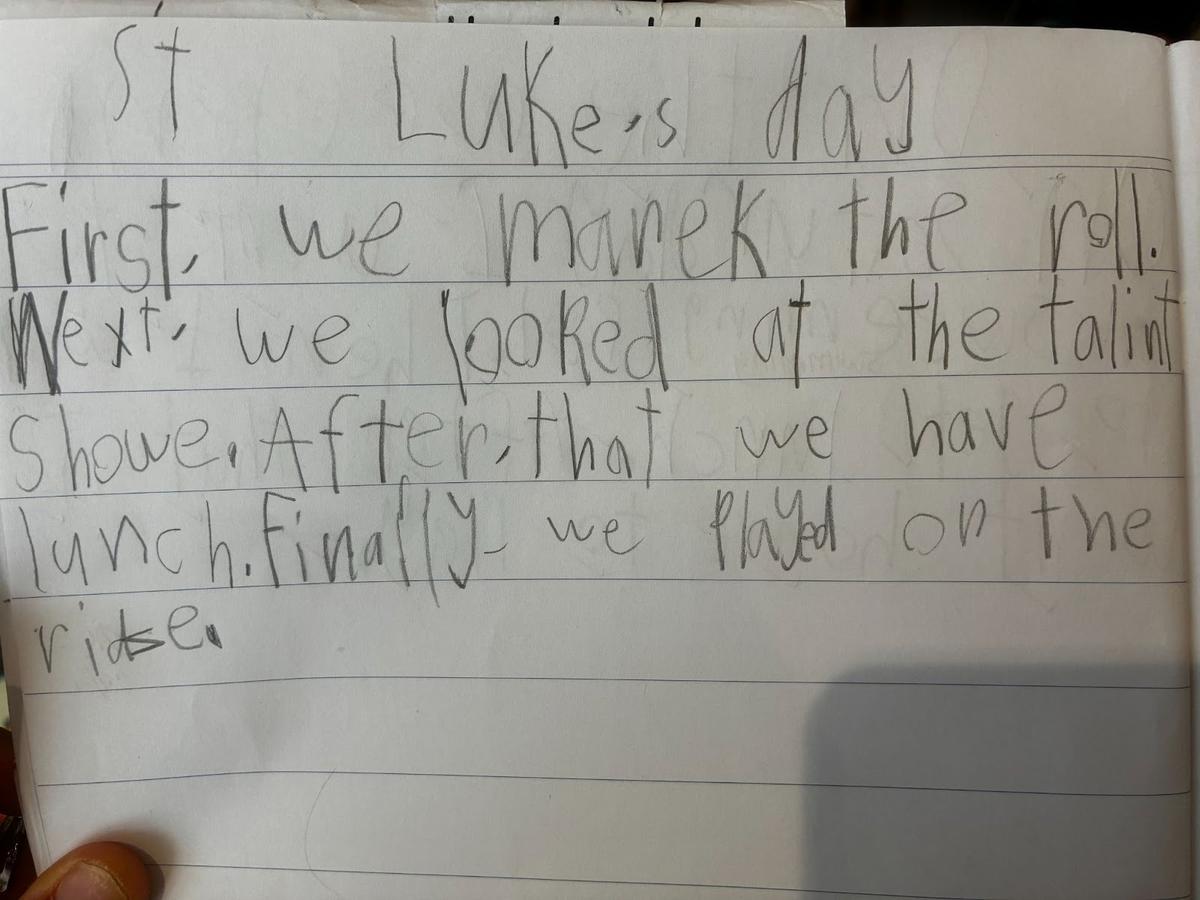 St Luke's day
First, we marek the roll.
Next, we looked at the talint
Showe. After, that we have
lunch. Finally we played on the